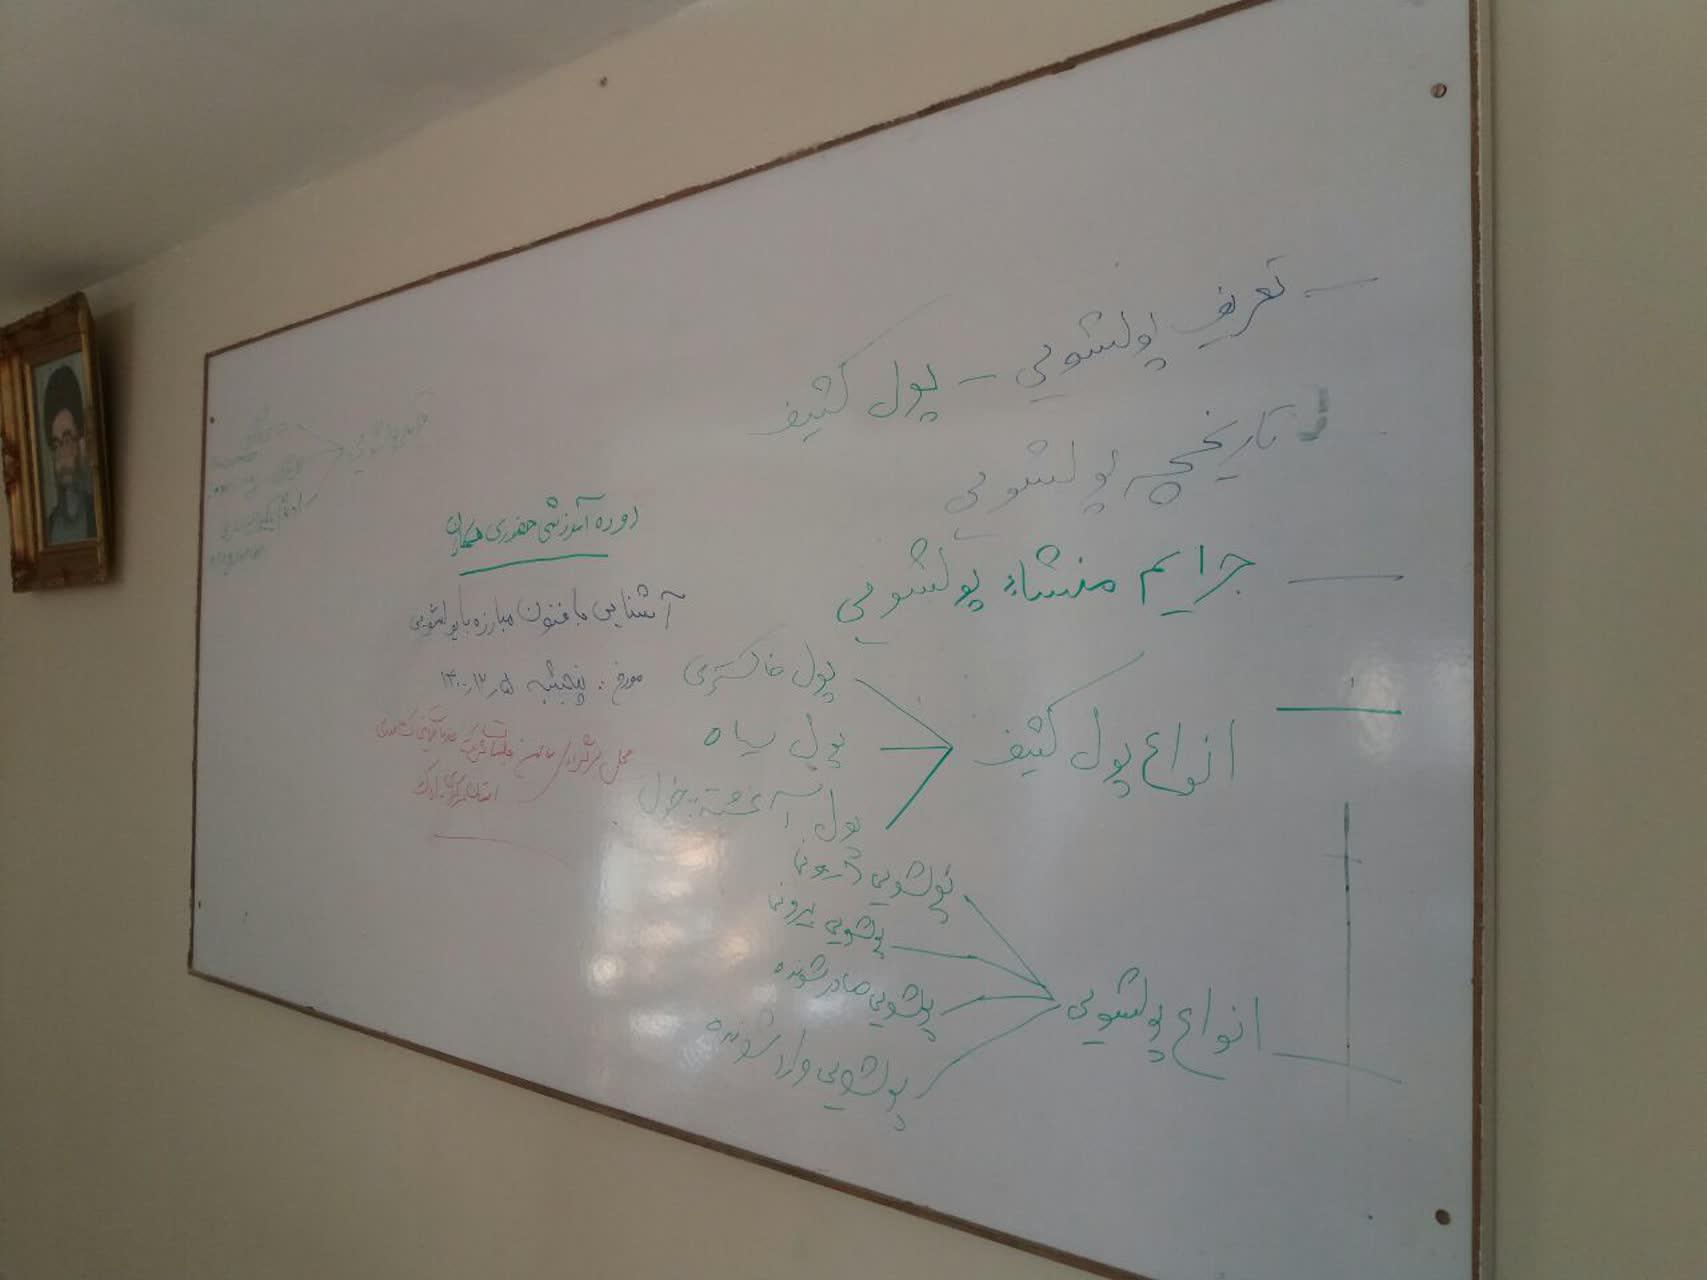 تعریف پولشویی - پول کثیف
تاریخچه پولشویی
جرایم منشاء پولشویی
انواع پول کثیف
پول خاکستری
پول سیاه
پول آغشته بخون
انواع پولشویی
پولشویی درونی
پولشویی بیرونی
پولشویی صادر شونده
پولشویی وارد شونده
دوره آموزشی حضوری همکاران
آشنایی با فنون مبارزه با پولشویی
مورخ : پنجشنبه ۱۴۰۰٫۱۲٫۵
محل برگزاری سالن جلسات شرکت
استان مرکزی اراک